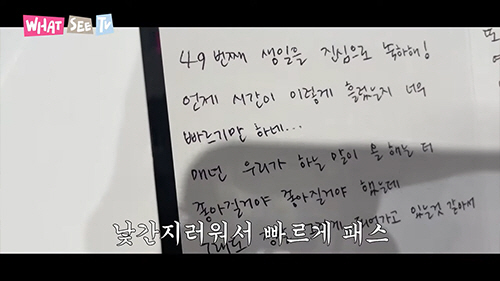 WHAT SEE TV
49번째 생일을 진심으로 축하해!
언제 시간이 이렇게 흘렀는지 너무
빠르기만 하네...
매년 우리가 하는 말이 올해는 더
좋아질거야 좋아질거야 했는데
그래도 되어가고 있는것 같아서
낯간지러워서 빠르게 패스